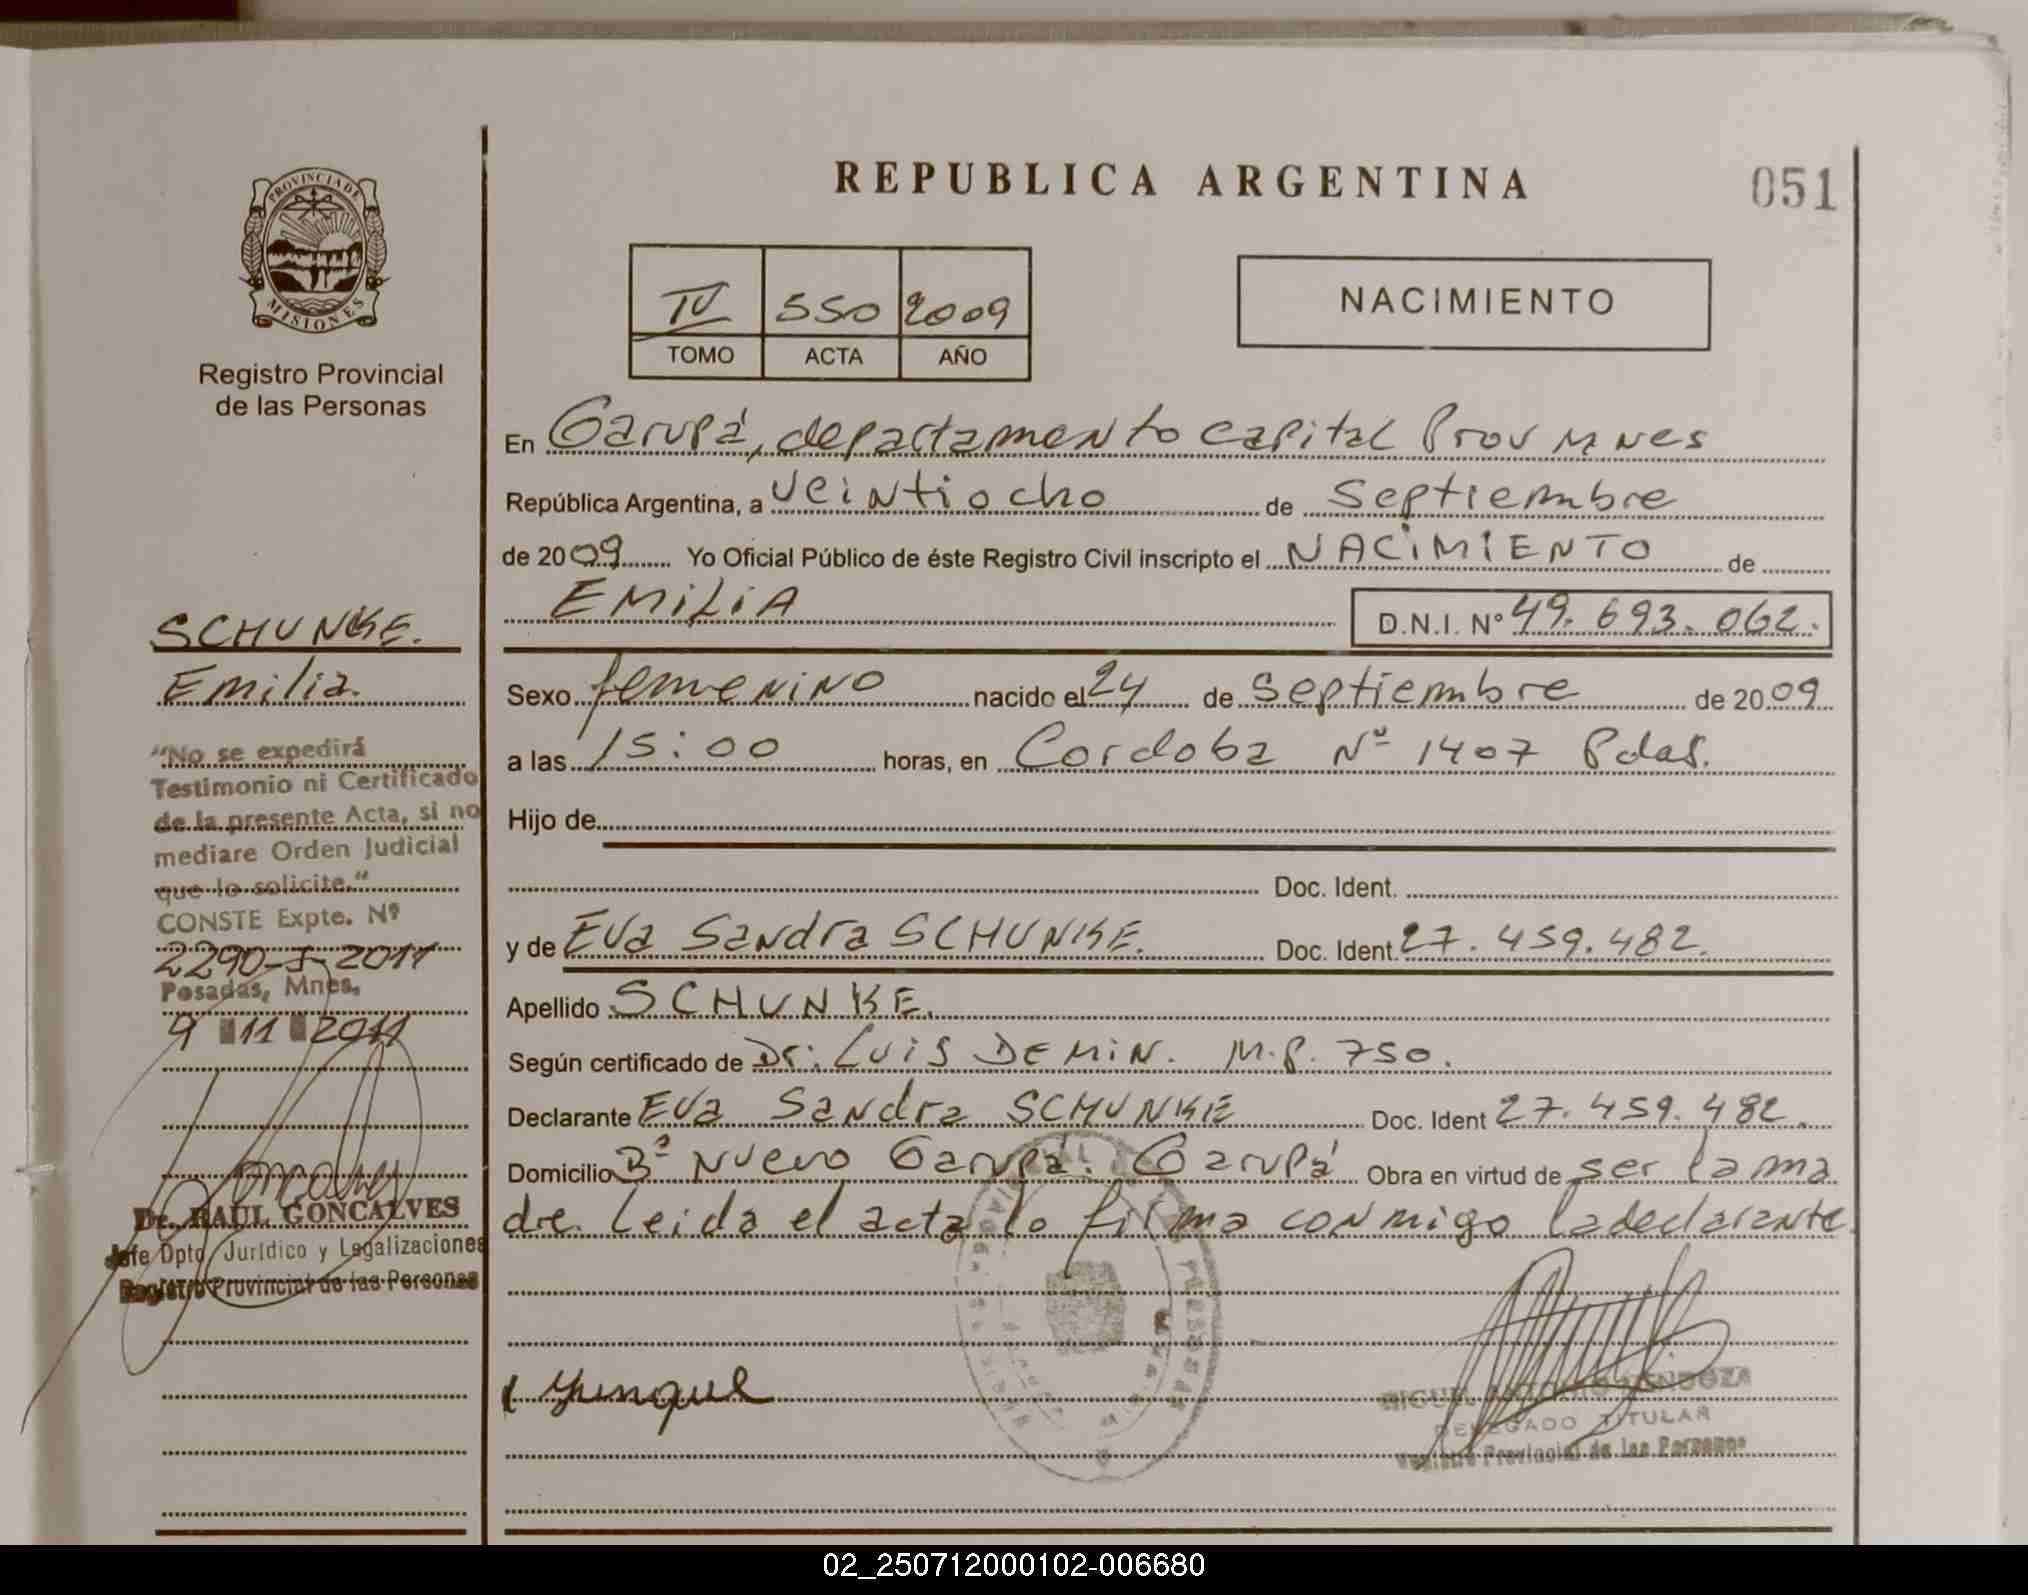 REPUBLICA ARGENTINA
051
PROVINCIA DE
MISIONES
Registro Provincial
de las Personas
IV 550 2009
TOMO ACTA AÑO
NACIMIENTO
En Garupá, departamento capital Prov Mnes
República Argentina, a veintiocho de septiembre
de 2009 Yo Oficial Público de éste Registro Civil inscripto el NACIMIENTO de
EMILIA D.N.I. Nº 49.693.062.
Sexo femenino nacido el 24 de septiembre de 2009
a las 15:00 horas, en Cordoba Nº 1407 Pdas.
Hijo de
Doc. Ident.
y de Eva Sandra SCHUNKE. Doc. Ident. 27.459.482.
Apellido SCHUNKE.
Según certificado de Dr: Luis DEMIN. M.P. 750.
Declarante Eva Sandra SCHUNKE Doc. Ident 27.459.482.
Domicilio Bº Nuevo Garupá. Garupá Obra en virtud de ser la ma
dre. Leida el acta lo firma conmigo la declarante.
SCHUNKE.
Emilia.
"No se expedirá
Testimonio ni Certificado
de la presente Acta, si no
mediare Orden Judicial
que lo solicite."
CONSTE Expte. Nº
2290-S-2011
Posadas, Mnes,
9 11 2011
Dr. RAUL GONCALVES
Jefe Dpto. Jurídico y Legalizaciones
Registro Provincial de las Personas
MIGUEL ANTONIO MENDOZA
DELEGADO TITULAR
Registro Provincial de las Personas
02_250712000102-006680